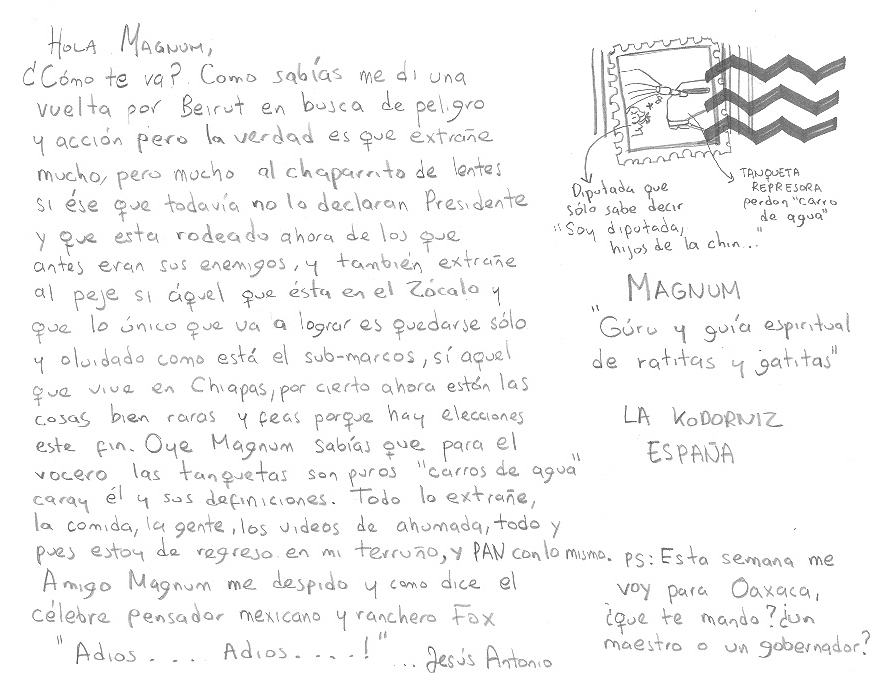 HOLA MAGNUM,
¿Cómo te va? Como sabías me di una
vuelta por Beirut en busca de peligro
y acción pero la verdad es que extrañe
mucho, pero mucho al chaparrito de lentes
si ése que todavía no lo declaran Presidente
y que esta rodeado ahora de los que
antes eran sus enemigos, y también extrañe
al peje si áquel que ésta en el Zócalo y
que lo único que va a lograr es quedarse sólo
y olvidado como está el sub-marcos, sí aquel
que vive en Chiapas, por cierto ahora están las
cosas bien raras y feas porque hay elecciones
este fin. Oye Magnum sabías que para el
vocero las tanquetas son puros "carros de agua"
caray él y sus definiciones. Todo lo extrañe,
la comida, la gente, los videos de ahumada, todo y
pues estoy de regreso en mi terruño, y PAN con lo mismo.
Amigo Magnum me despido y como dice el
célebre pensador mexicano y ranchero Fox
"Adios . . . . Adios. . . . !"
... Jesús Antonio
Diputada que
sólo sabe decir
"Soy diputada,
hijos de la chin..."
TANQUETA
REPRESORA
perdon "carro
de agua"
MAGNUM
"Gúru y guía espiritual
de ratitas y gatitas"
LA KODORNIZ
ESPAÑA
PS: Esta semana me
voy para Oaxaca,
¿que te mando? ¿un
maestro o un gobernador?